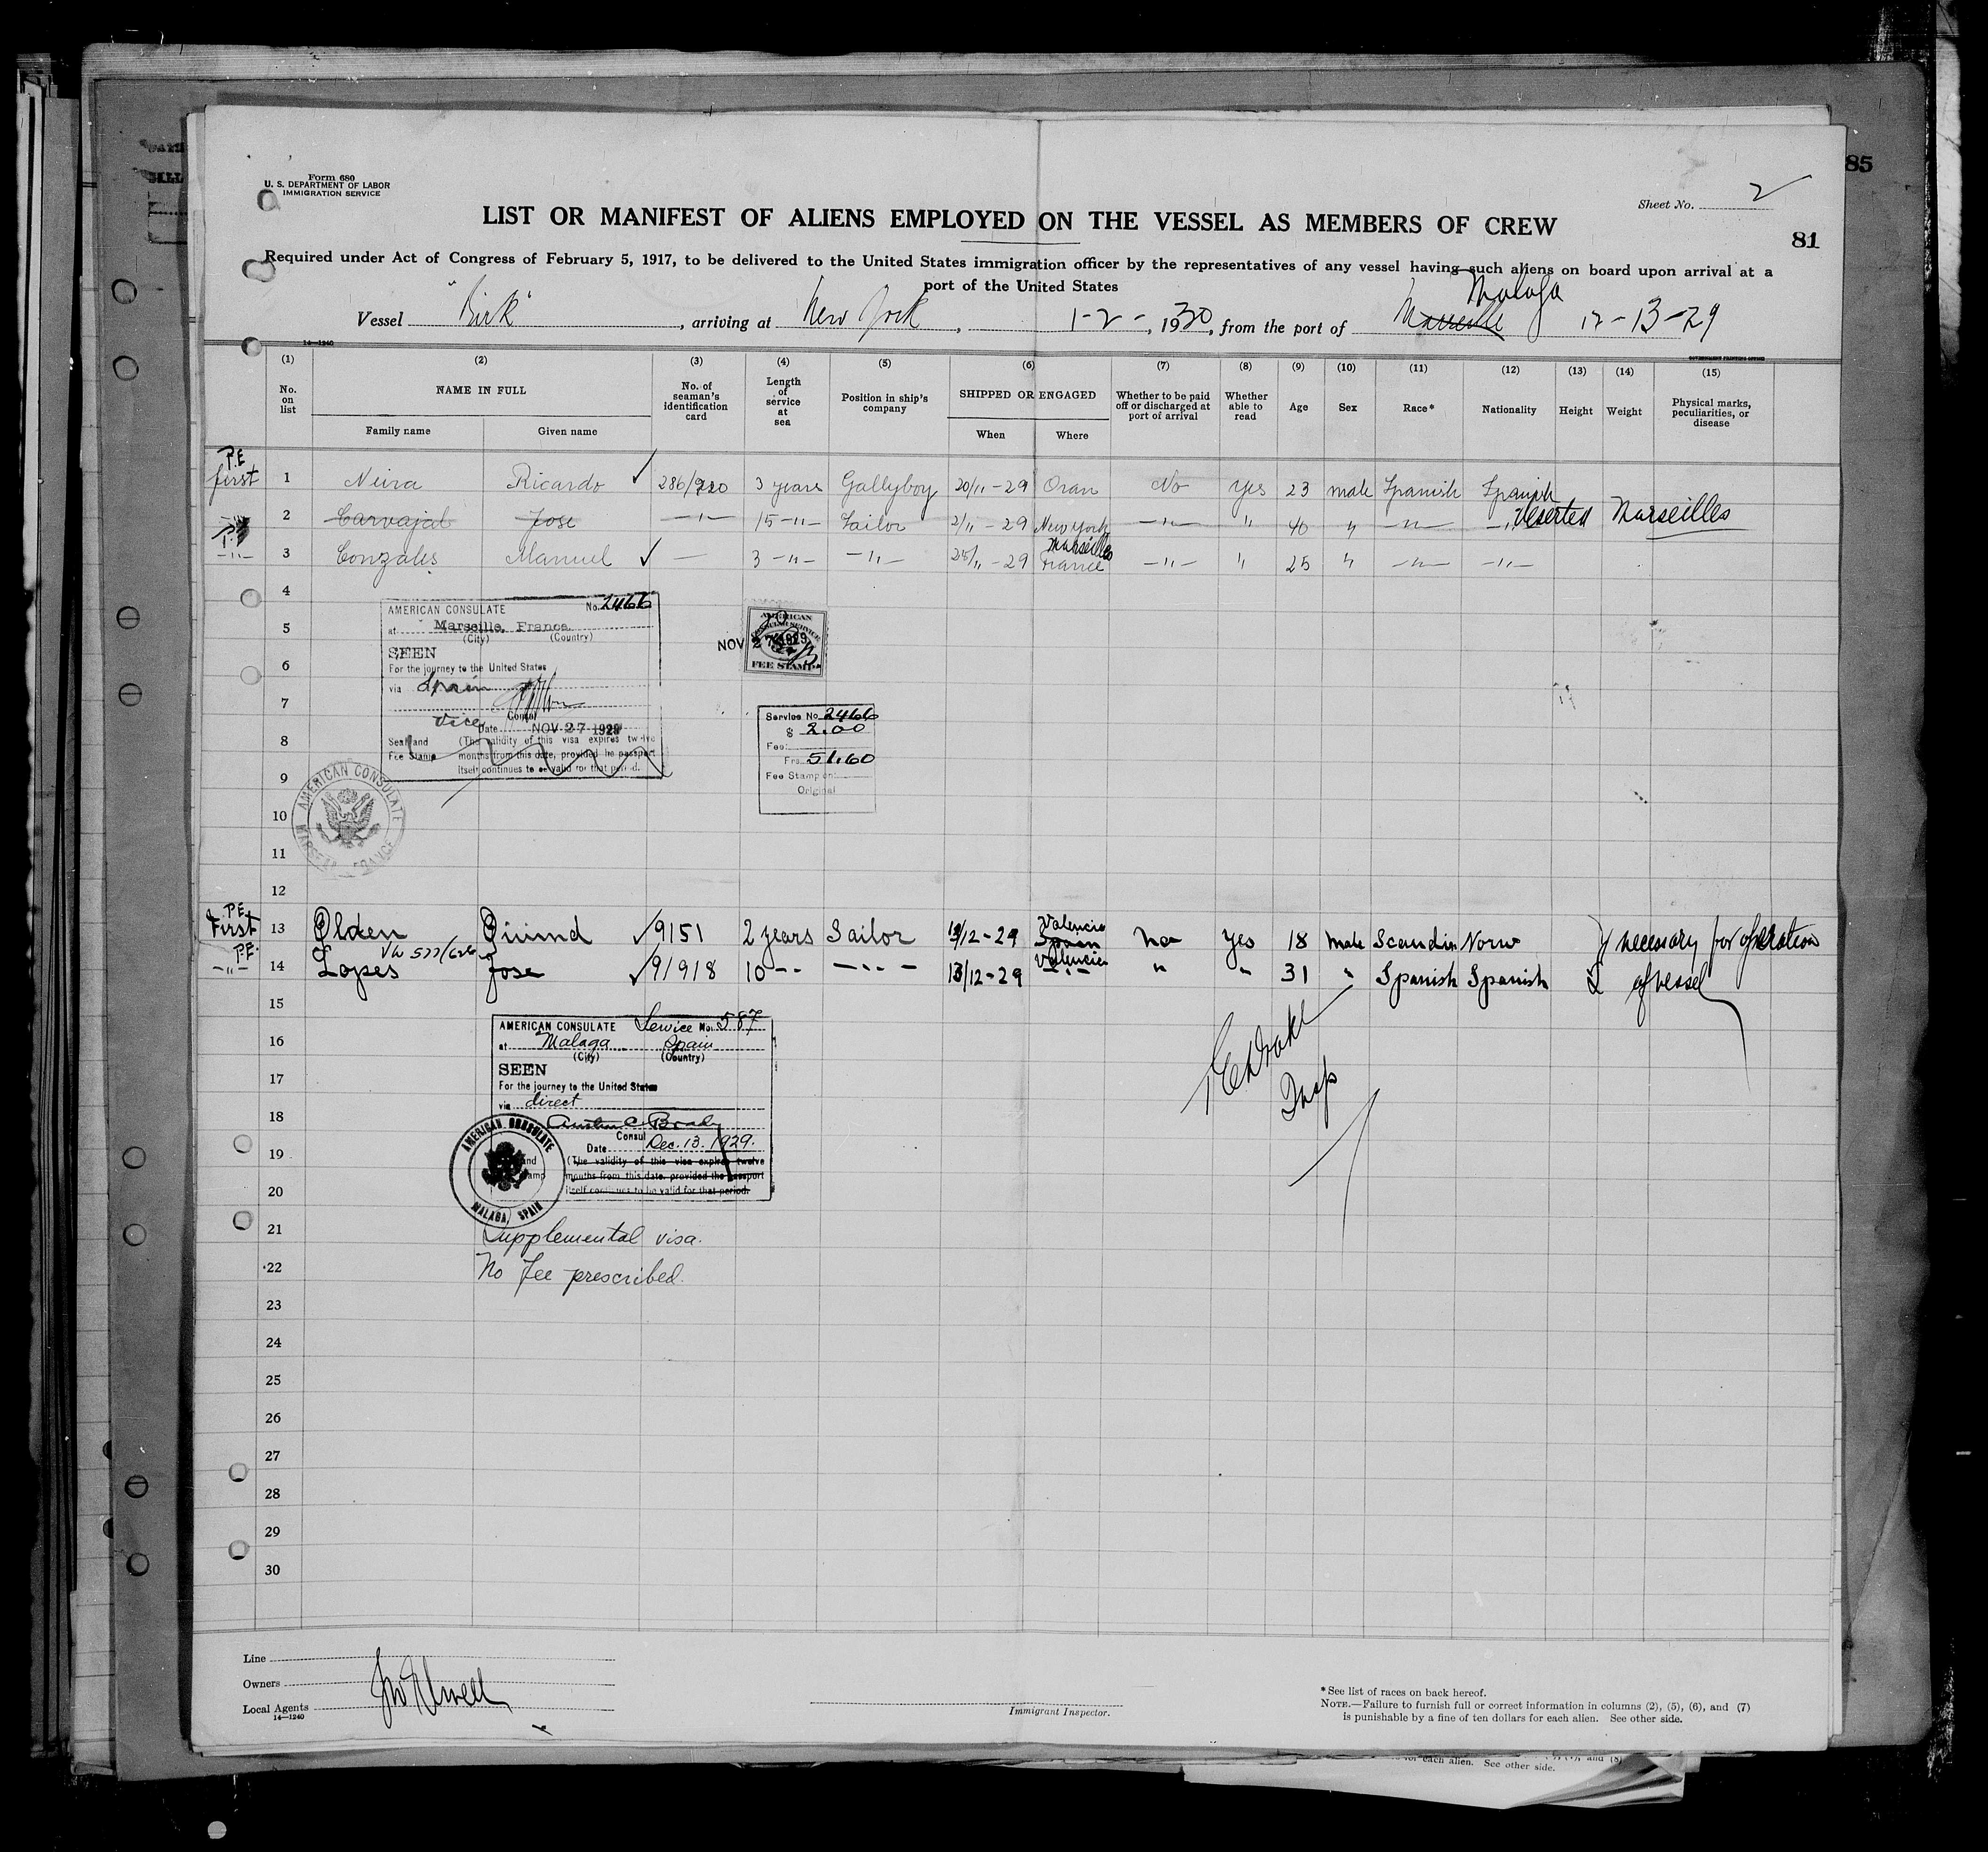 85
Form 680
U. S. DEPARTMENT OF LABOR
IMMIGRATION SERVICE
Sheet No. 2
LIST OR MANIFEST OF ALIENS EMPLOYED ON THE VESSEL AS MEMBERS OF CREW
81
Required under Act of Congress of February 5, 1917, to be delivered to the United States immigration officer by the representatives of any vessel having such aliens on board upon arrival at a
port of the United States
Malaga
Vessel "Birk", arriving at New York, 1-2-, 1930, from the port of Marseille 12-13-29
14—1240
GOVERNMENT PRINTING OFFICE
(1) (2) (3) (4) (5) (6) (7) (8) (9) (10) (11) (12) (13) (14) (15)
No. on list
NAME IN FULL
Family name
Given name
No. of seaman's identification card
Length of service at sea
Position in ship's company
SHIPPED OR ENGAGED
When
Where
Whether to be paid off or discharged at port of arrival
Whether able to read
Age
Sex
Race*
Nationality
Height
Weight
Physical marks, peculiarities, or disease
P.E.
first 1 Neira Ricardo ✓ 286/920 3 years Gallyboy 20/11-29 Oran No yes 23 male Spanish Spanish
2 Carvajal Jose —"— 15 -"- Sailor 2/11-29 New York —"— " 40 " —"— —"— deserted Marseilles
Marseilles
-"- 3 Gonzales Manuel ✓ — 3 -"- -"- 25/11-29 France —"— " 25 " —"— —"—
4
5
6
7
8
9
10
11
12
AMERICAN CONSULATE No. 2466
at Marseille, France
(City) (Country)
SEEN
For the journey to the United States
via Spain
Vice Consul
Date NOV 27 1929
Seal and
Fee Stamp
(The validity of this visa expires twelve
months from this date, provided the passport
itself continues to be valid for that period.
AMERICAN CONSULATE
MARSEILLE FRANCE
NOV 27 1929
AMERICAN
CONSULAR SERVICE
FEE STAMP
Service No. 2466
$ 2.00
Fee:
Frs. 51.60
Fee Stamp on
Original
P.E. Valencia
First 13 Olden Oivind ✓ 9151 2 years Sailor 12/12-29 Spain No Yes 18 Male Scandin Norw } necessary for operation
P.E. Valencia
-"- 14 Lopes Jose ✓ 91918 10 -- -"- 13/12-29 -"- " " 31 " Spanish Spanish of vessel
15
16
17
18
19
20
21
22
23
24
25
26
27
28
29
30
AMERICAN CONSULATE Service No. 587
at Malaga Spain
(City) (Country)
SEEN
For the journey to the United States
via direct
Austin C. Brady
Consul
Date Dec. 13. 1929.
(The validity of this visa expires twelve
months from this date, provided the passport
itself continues to be valid for that period.
AMERICAN CONSULATE
MALAGA, SPAIN
Supplemental visa.
No Fee prescribed.
Insp
Line
Owners
Local Agents
14—1240
Immigrant Inspector.
*See list of races on back hereof.
NOTE.—Failure to furnish full or correct information in columns (2), (5), (6), and (7)
is punishable by a fine of ten dollars for each alien. See other side.
for each alien. See other side.